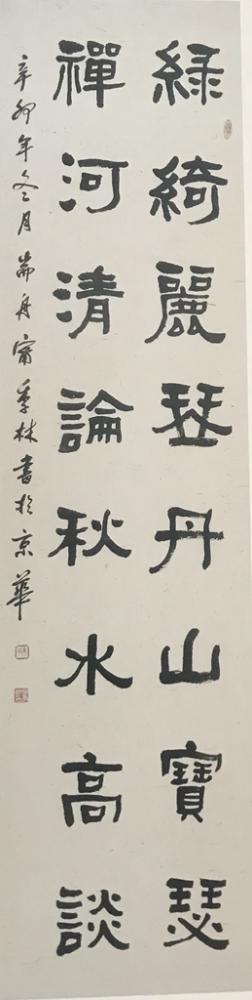 綠綺麗琴丹山寶瑟
禪河清論秋水高談
辛卯年冬月 耑舟 甯季林書於京華